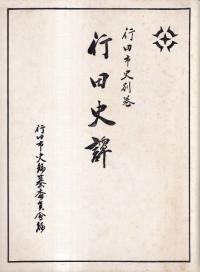 行田市史別巻
行田史譚
行田市史編纂委員会編